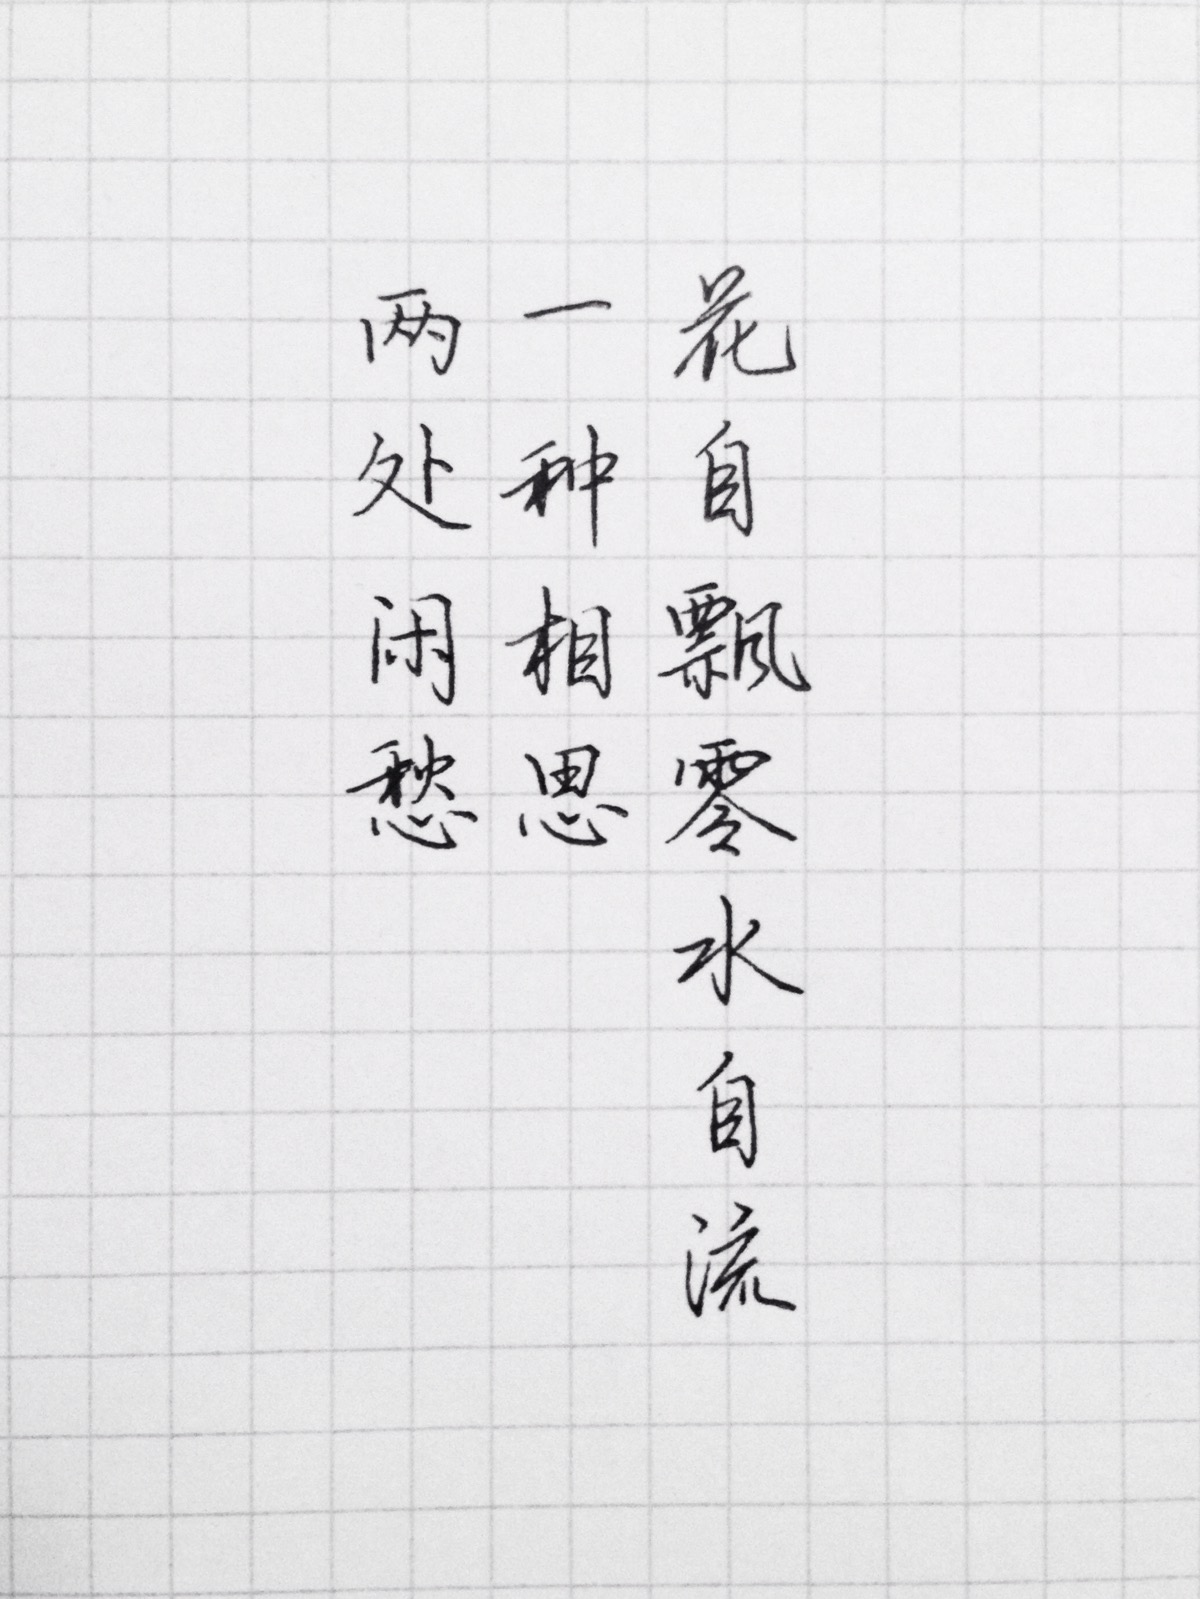 花自飘零水自流
一种相思
两处闲愁